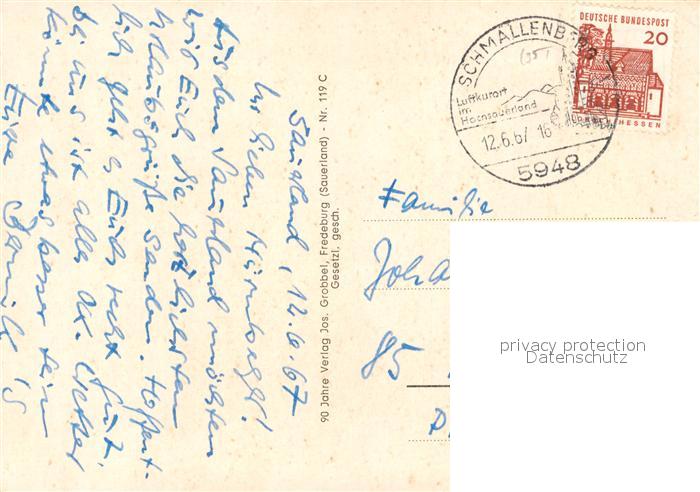 Sauerland, 12.6.67
Ihr lieben Nürnberger!
Aus dem Sauerland möchten
wir Euch die herzlichsten
Urlaubsgrüße senden. Hoffent-
lich geht es Euch recht gut.
bei uns ist alles ok. Wetter
könnte etwas besser sein
Eure
90 Jahre Verlag Jos. Grobbel, Fredeburg (Sauerland) - Nr. 119 C
Gesetzl. gesch.
SCHMALLENBERG
Luftkurort
im
Hochsauerland
12.6.67 16
5948
DEUTSCHE BUNDESPOST
20
HESSEN
Familie
Joh
85
privacy protection
Datenschutz